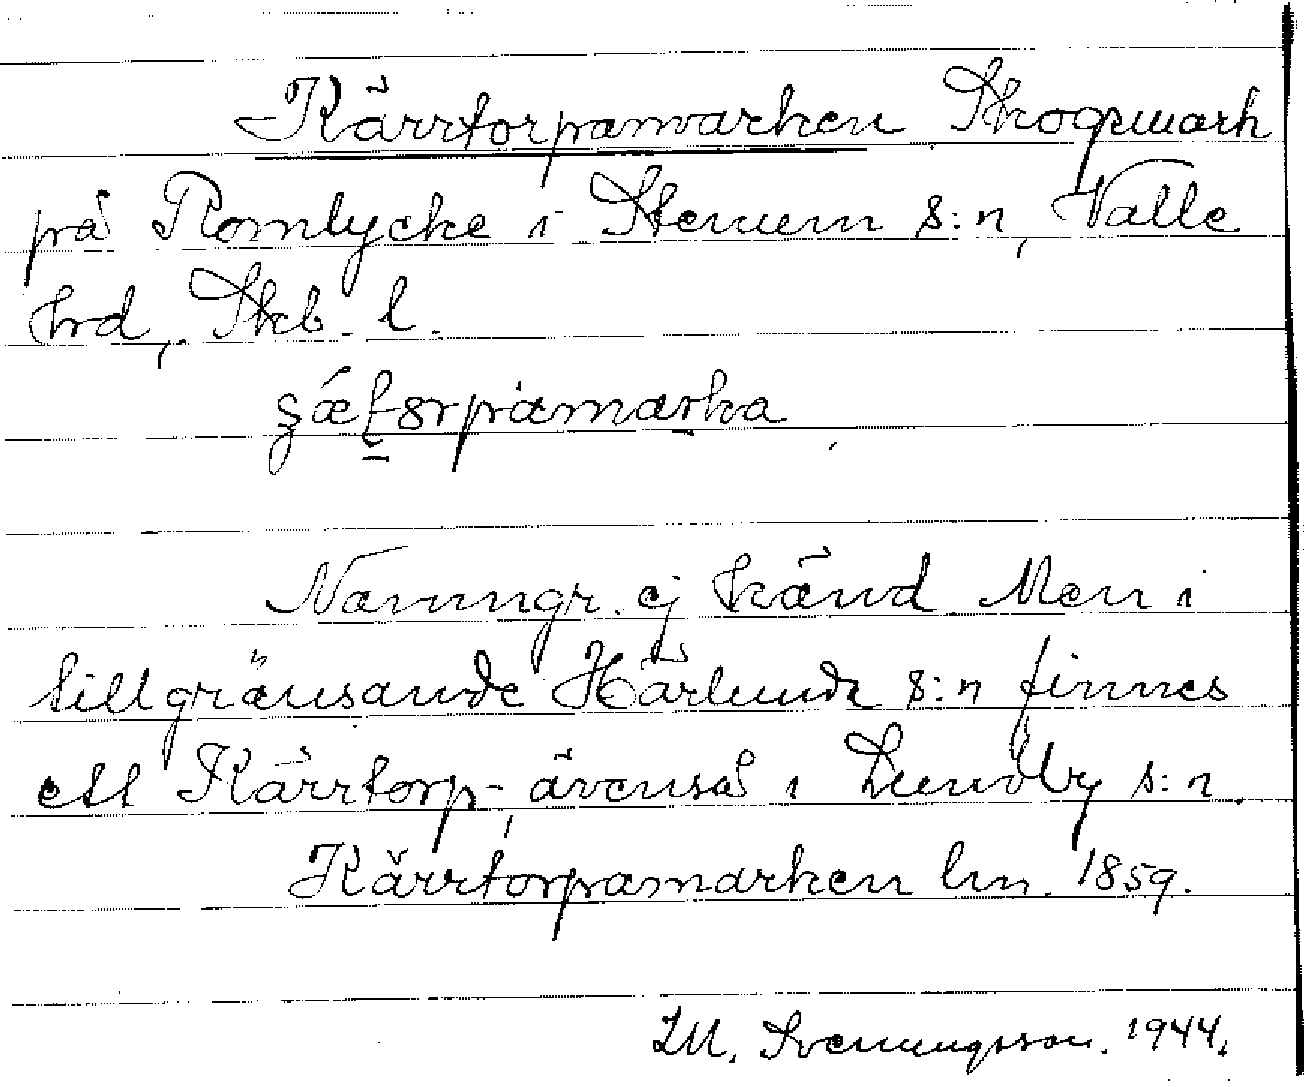 Kärrtorpamarken Skogsmark
på Romlycke i Stenum s:n, Valle
hrd, Skb. l.
Namngr. ej känd Men i
tillgränsande Härlunda s:n finnes
ett Kärrtorp, ävenså i Lundby s:n.
Kärrtorpamarken lm. 1859.
I.M. Svenungsson. 1944.